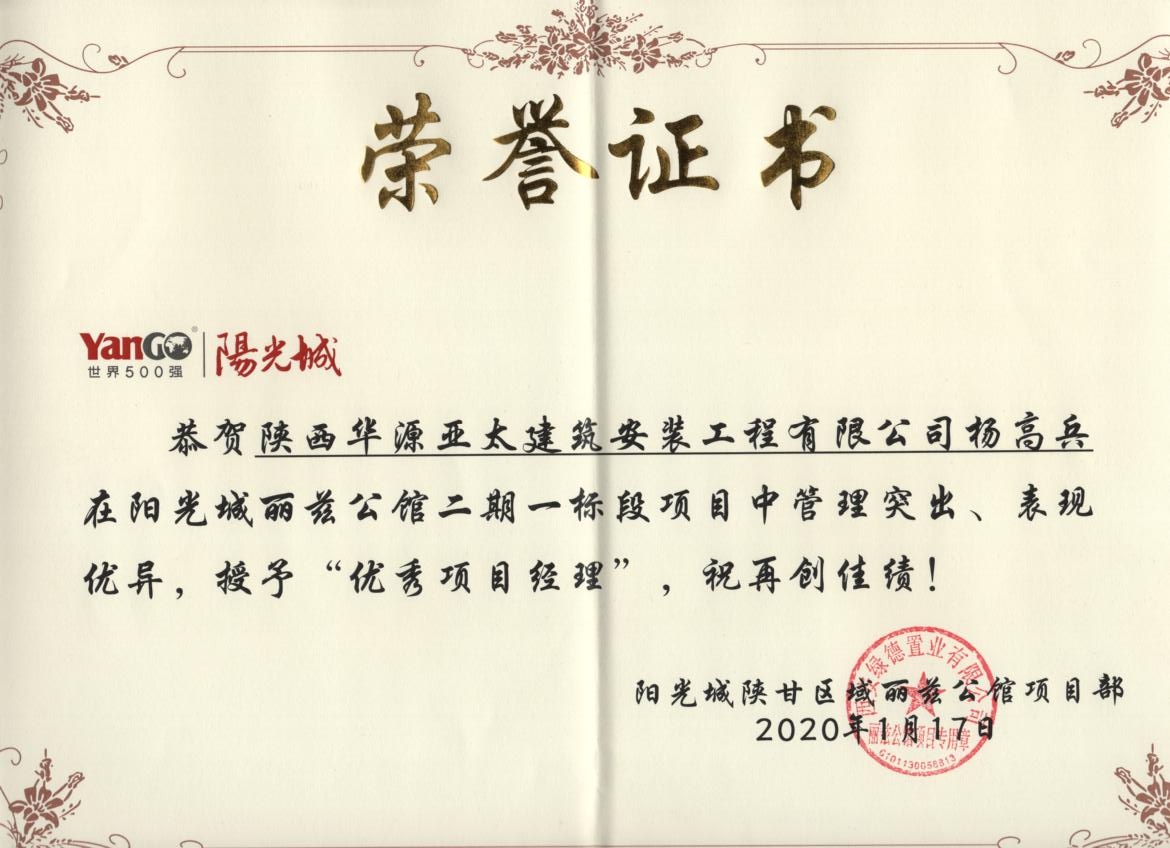 荣誉证书
YanGO® 陽光城
世界500强
恭贺陕西华源亚太建筑安装工程有限公司杨高兵
在阳光城丽兹公馆二期一标段项目中管理突出、表现
优异，授予“优秀项目经理”，祝再创佳绩！
西安绿德置业有限公司
阳光城陕甘区域丽兹公馆项目部
2020年1月17日
丽兹公馆项目专用章
6101130058813